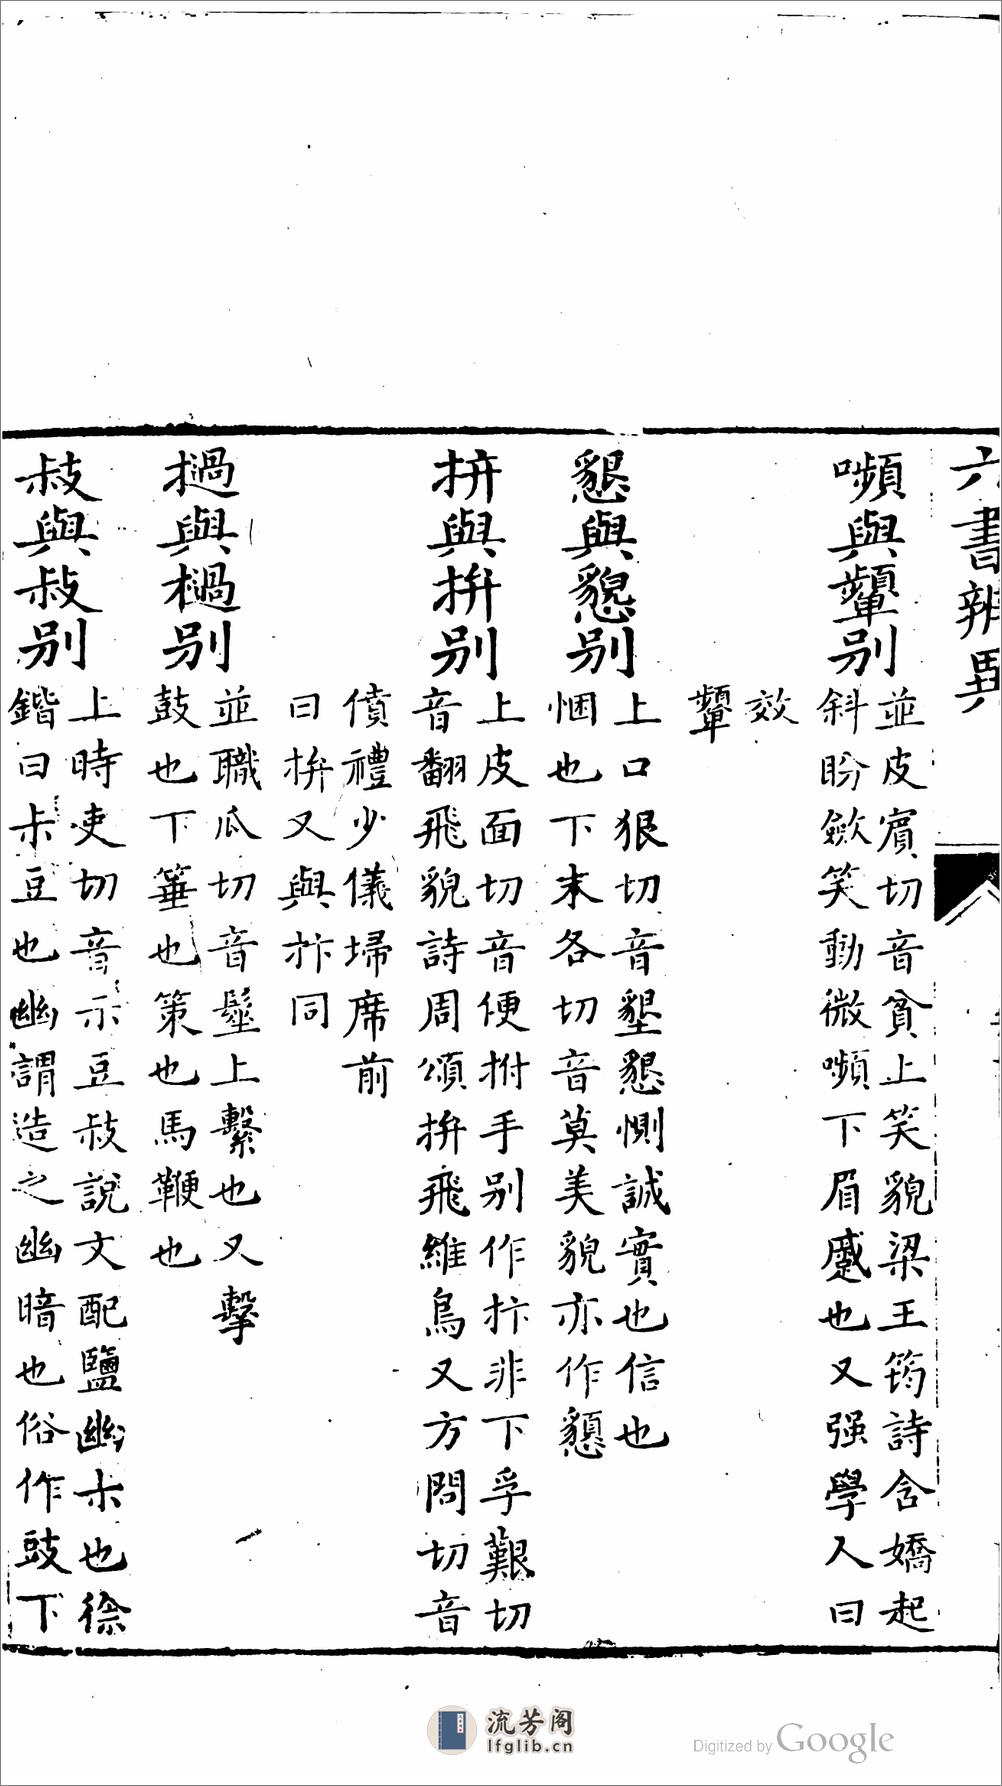 六書辨異
嚬與顰别
並皮賓切音貧上笑貌梁王筠詩含嬌起
斜盼歛笑動微嚬下眉蹙也又强學人曰
效
顰
懇與懇别
上口狠切音墾懇惻誠實也信也
悃也下末各切音莫美貌亦作懇
拚與拚别
上皮面切音便拊手别作抃非下孚艱切
音翻飛貌詩周頌拚飛維鳥又方問切音
僨禮少儀埽席前
曰拚又與抃同
檛與檛别
並職瓜切音髽上繫也又擊
鼓也下箠也策也馬鞭也
敊與敊别
上時吏切音示豆敊說文配鹽幽尗也徐
鍇曰尗豆也幽謂造之幽暗也俗作豉下
流芳阁
lfglib.cn
Digitized by Google